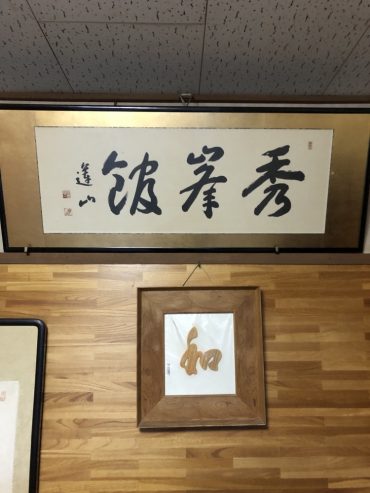 秀峯館
蓬山
和